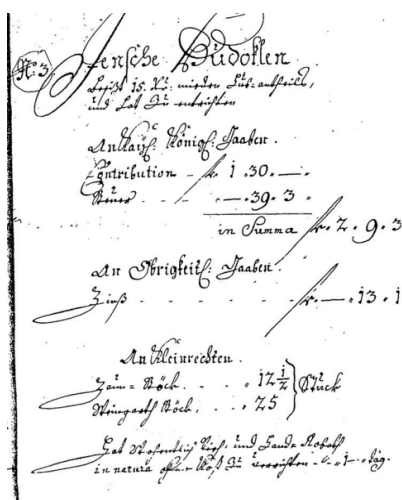 No: 3. Jensche Büdoklen
besizt 15. Xr.
und hat zu entrichten
An Kayß: Königl: Gaaben.
Contribution - fr 1. 30. —.
Steuer . . . —. 39. 3.
in Summa fr. 2. 9. 3
An Obrigkeitl: Gaaben.
Zinß - - - - - fr. —. 13. 1
An Kleinrechten.
Zaun= Stöck. . . . 12 1/2 Stück
Weingarth Stöck. . . . 25
Hat und Hand Roboth
in natura zu verrichten 1 Täg.